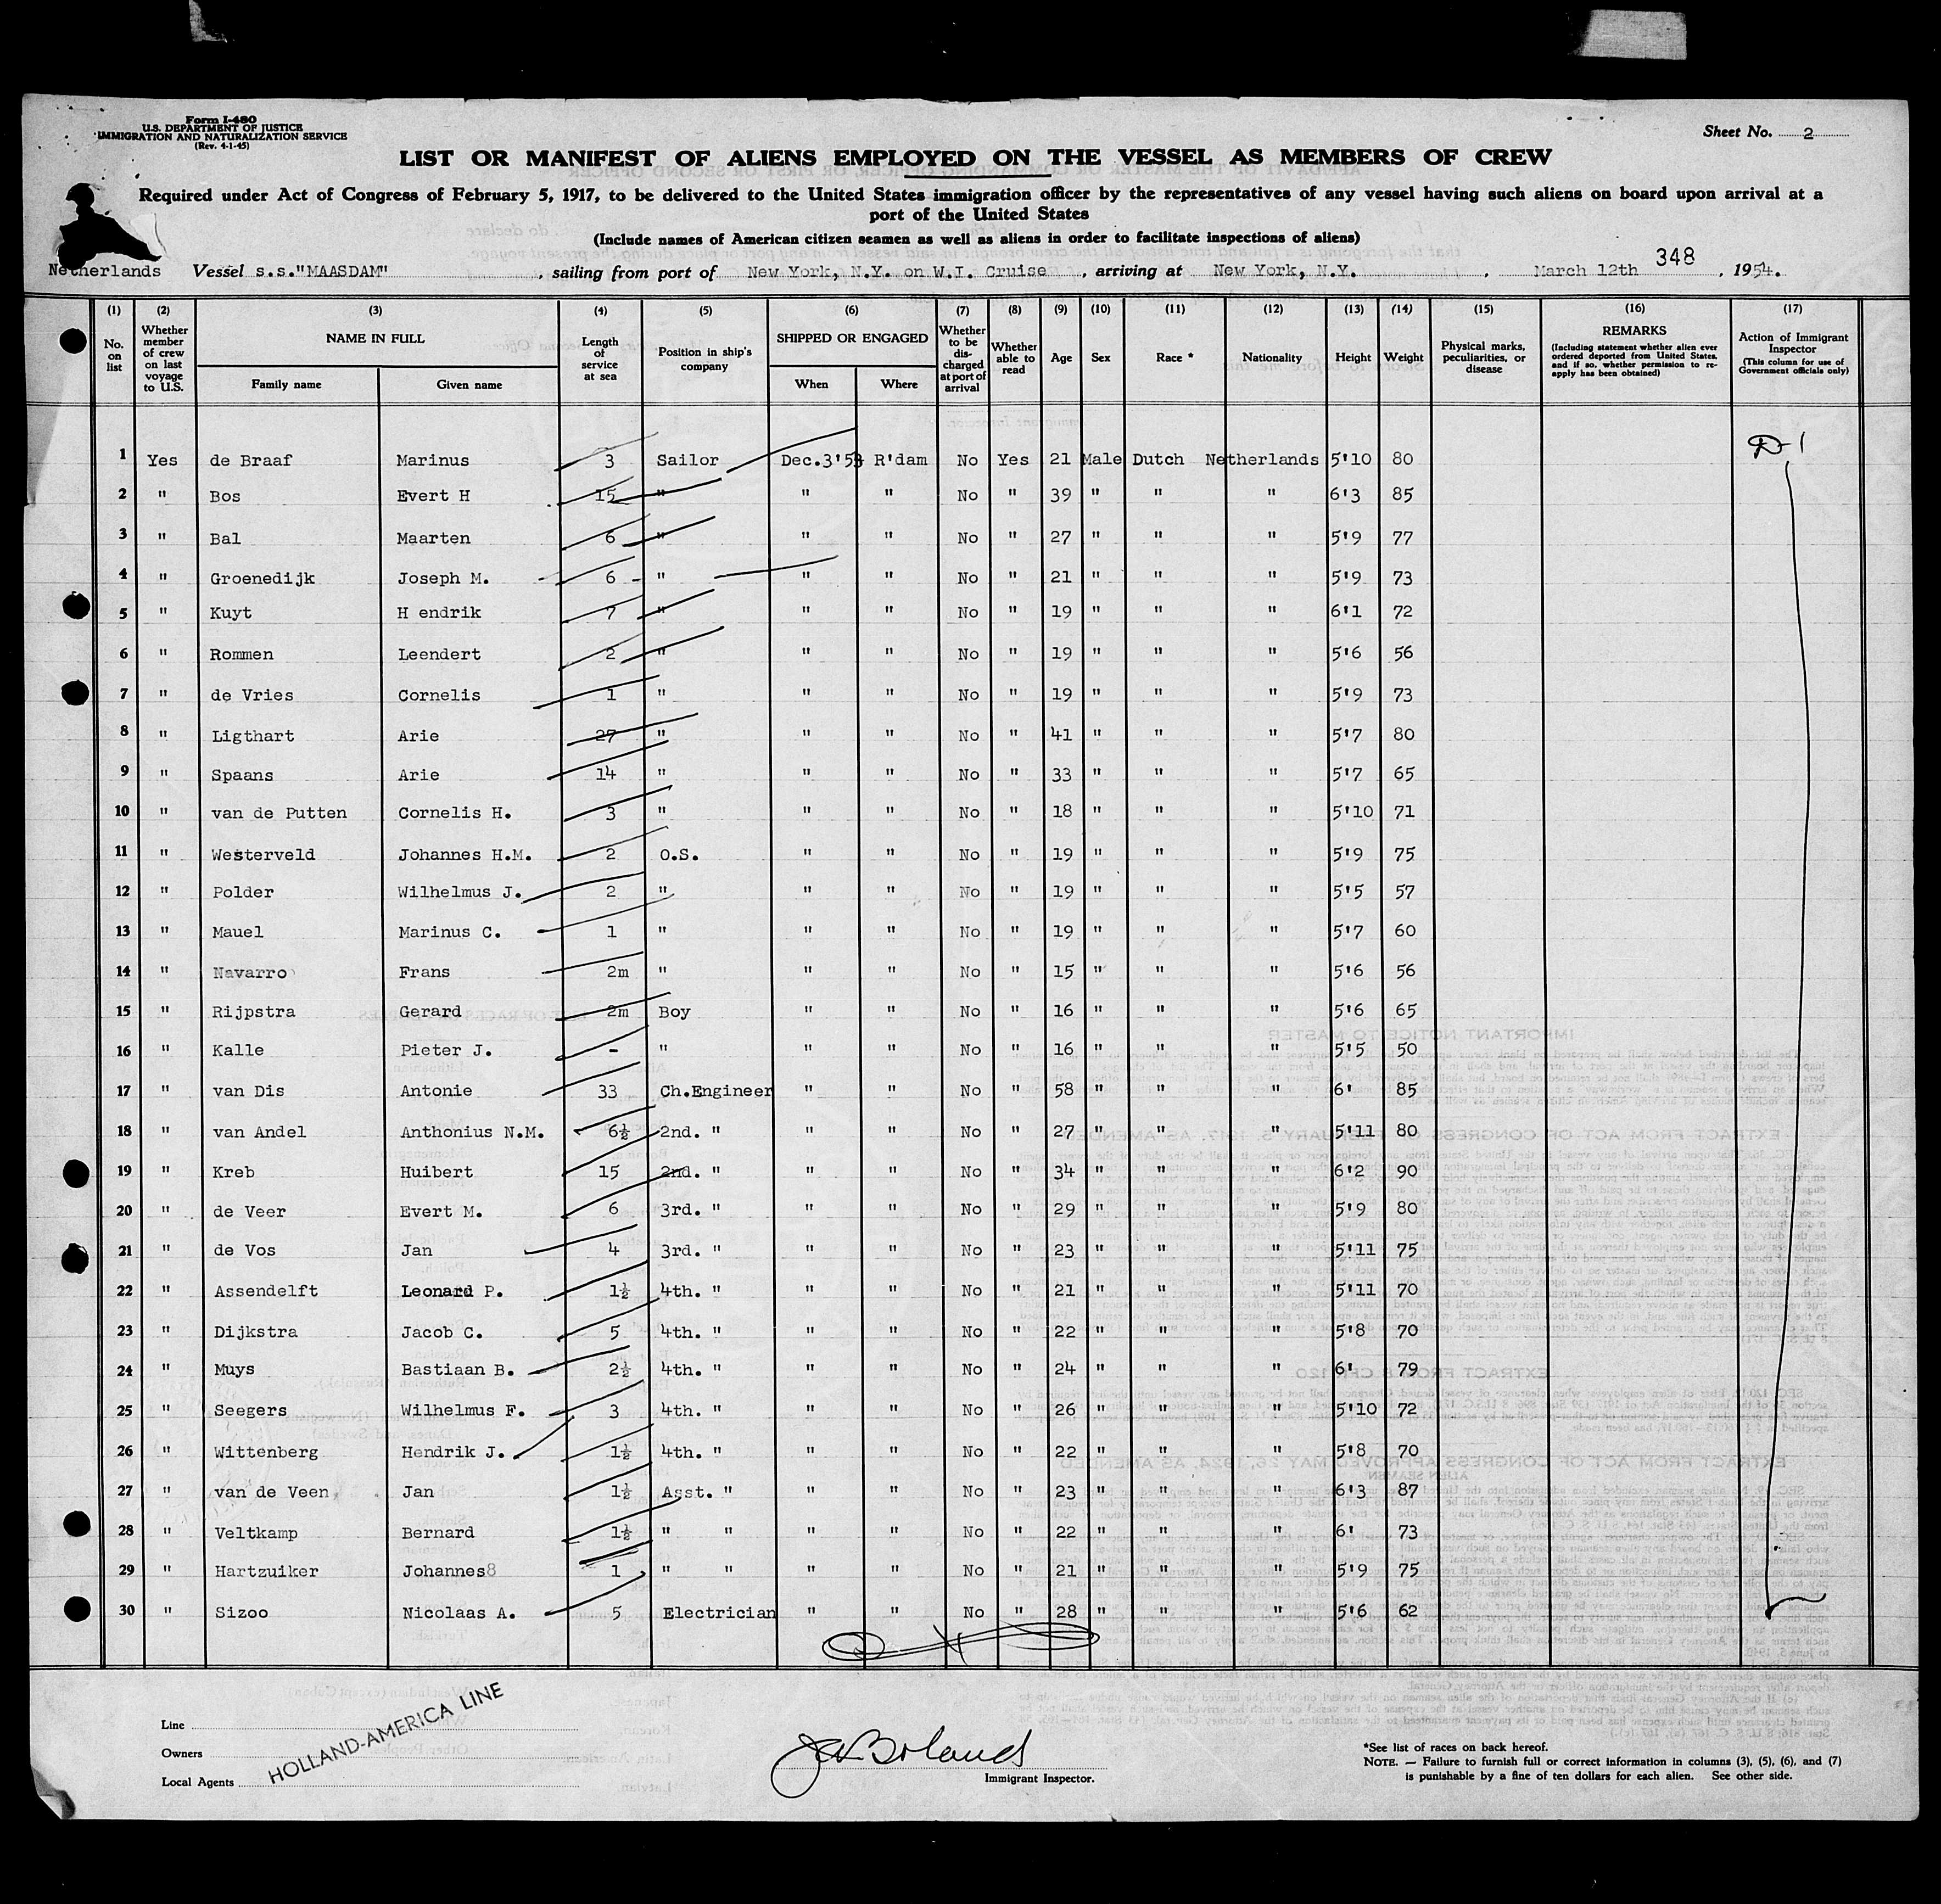 Form I-480
U.S. DEPARTMENT OF JUSTICE
IMMIGRATION AND NATURALIZATION SERVICE
(Rev. 4-1-45)
Sheet No. 2
LIST OR MANIFEST OF ALIENS EMPLOYED ON THE VESSEL AS MEMBERS OF CREW
Required under Act of Congress of February 5, 1917, to be delivered to the United States immigration officer by the representatives of any vessel having such aliens on board upon arrival at a
port of the United States
(Include names of American citizen seamen as well as aliens in order to facilitate inspections of aliens)
348
Netherlands Vessel s.s."MAASDAM", sailing from port of New York, N.Y. on W.I. Cruise, arriving at New York, N.Y., March 12th, 1954.
(1) No. on list (2) Whether member of crew on last voyage to U.S. (3) NAME IN FULL Family name Given name (4) Length of service at sea (5) Position in ship's company (6) SHIPPED OR ENGAGED When Where (7) Whether to be discharged at port of arrival (8) Whether able to read (9) Age (10) Sex (11) Race * (12) Nationality (13) Height (14) Weight (15) Physical marks, peculiarities, or disease (16) REMARKS (Including statement whether alien ever ordered deported from United States, and if so, whether permission to re-apply has been obtained) (17) Action of Immigrant Inspector (This column for use of Government officials only)
1 Yes de Braaf Marinus 3 Sailor Dec.3'53 R'dam No Yes 21 Male Dutch Netherlands 5'10 80
2 " Bos Evert H 15 " " " No " 39 " " " 6'3 85
3 " Bal Maarten 6 " " " No " 27 " " " 5'9 77
4 " Groenedijk Joseph M. 6 " " " No " 21 " " " 5'9 73
5 " Kuyt H endrik 7 " " " No " 19 " " " 6'1 72
6 " Rommen Leendert 2 " " " No " 19 " " " 5'6 56
7 " de Vries Cornelis 1 " " " No " 19 " " " 5'9 73
8 " Ligthart Arie 27 " " " No " 41 " " " 5'7 80
9 " Spaans Arie 14 " " " No " 33 " " " 5'7 65
10 " van de Putten Cornelis H. 3 " " " No " 18 " " " 5'10 71
11 " Westerveld Johannes H.M. 2 O.S. " " No " 19 " " " 5'9 75
12 " Polder Wilhelmus J. 2 " " " No " 19 " " " 5'5 57
13 " Mauel Marinus C. 1 " " " No " 19 " " " 5'7 60
14 " Navarro Frans 2m " " " No " 15 " " " 5'6 56
15 " Rijpstra Gerard 2m Boy " " No " 16 " " " 5'6 65
16 " Kalle Pieter J. - " " " No " 16 " " " 5'5 50
17 " van Dis Antonie 33 Ch.Engineer " " No " 58 " " " 6' 85
18 " van Andel Anthonius N.M. 6½ 2nd. " " " No " 27 " " " 5'11 80
19 " Kreb Huibert 15 2nd. " " " No " 34 " " " 6'2 90
20 " de Veer Evert M. 6 3rd. " " " No " 29 " " " 5'9 80
21 " de Vos Jan 4 3rd. " " " No " 23 " " " 5'11 75
22 " Assendelft Leonard P. 1½ 4th. " " " No " 21 " " " 5'11 70
23 " Dijkstra Jacob C. 5 4th. " " " No " 22 " " " 5'8 70
24 " Muys Bastiaan B. 2½ 4th. " " " No " 24 " " " 6' 79
25 " Seegers Wilhelmus F. 3 4th. " " " No " 26 " " " 5'10 72
26 " Wittenberg Hendrik J. 1½ 4th. " " " No " 22 " " " 5'8 70
27 " van de Veen Jan 1½ Asst. " " " No " 23 " " " 6'3 87
28 " Veltkamp Bernard 1½ " " " " No " 22 " " " 6' 73
29 " Hartzuiker Johannes8 1 " " " " No " 21 " " " 5'9 75
30 " Sizoo Nicolaas A. 5 Electrician " " No " 28 " " " 5'6 62
Line
Owners
Local Agents
HOLLAND-AMERICA LINE
Immigrant Inspector.
*See list of races on back hereof.
NOTE. — Failure to furnish full or correct information in columns (3), (5), (6), and (7)
is punishable by a fine of ten dollars for each alien. See other side.